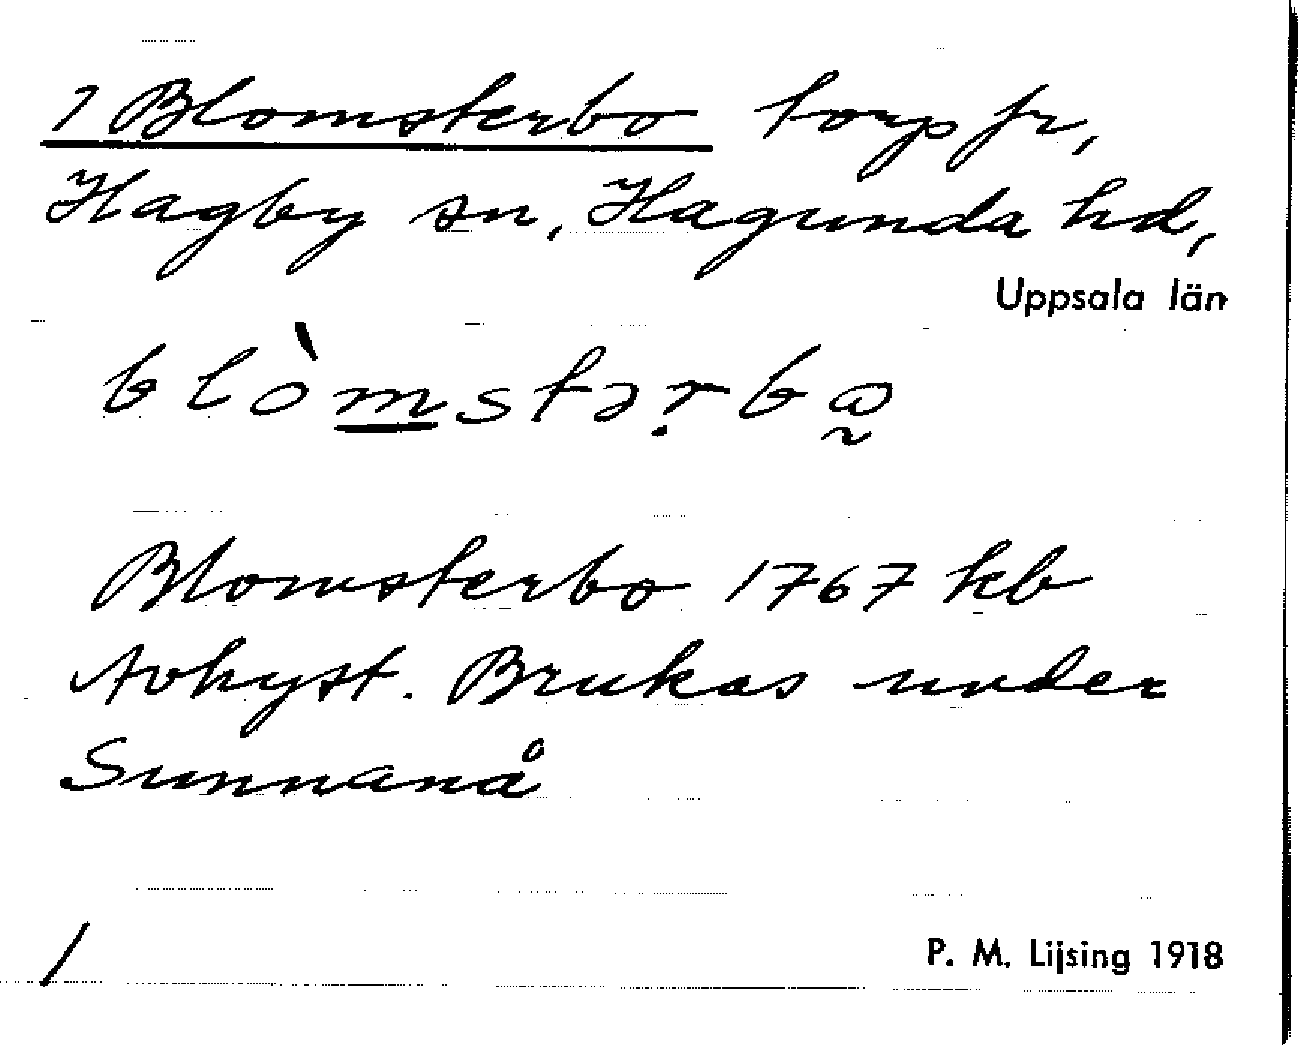 1 Blomsterbo torp fr,
Hagby sn, Hagunda hd,
Uppsala län
blòmstərbω̰
Blomsterbo 1767 kb
Avhyst. Brukas under
Sunnanå
/
P. M. Lijsing 1918